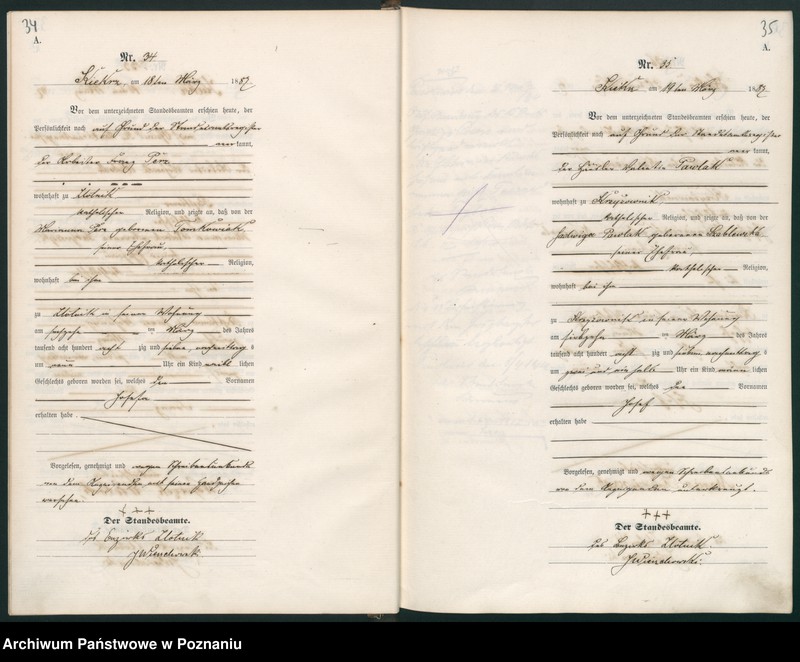 34
A.
Nr. 34
Kiekrz, am 18ten März 1887
Vor dem unterzeichneten Standesbeamten erschien heute, der
Persönlichkeit nach auf Grund der Standesamtsregister
aner kannt,
der Arbeiter Franz
wohnhaft zu Zlotnik
katholischer Religion, und zeigte an, daß von der
Marianna geborenen Tomkowiak
seiner Ehefrau,
katholischer Religion,
wohnhaft bei ihm
zu Zlotnik in seiner Wohnung
am sechzehn ten März des Jahres
tausend acht hundert acht zig und sieben nachmittags
um neun Uhr ein Kind weib lichen
Geschlechts geboren worden sei, welches den Vornamen
Josefa
erhalten habe.
Vorgelesen, genehmigt und wegen Schreibensunkunde
von dem Anzeigenden mit seinem Handzeichen
versehen
+++
Der Standesbeamte.
des Bezirks Zlotnik
35
A.
Nr. 35
Kiekrz am 19ten März 1887
Vor dem unterzeichneten Standesbeamten erschien heute, der
Persönlichkeit nach auf Grund der Standesamtsregister
aner kannt,
der Häusler Valentin Pawlak
wohnhaft zu
katholischer Religion, und zeigte an, daß von der
Hedwiga Pawlak geborenen
seiner Ehefrau,
katholischer Religion,
wohnhaft bei ihm
zu in seiner Wohnung
am siebzehn ten März des Jahres
tausend acht hundert acht zig und sieben nachmittags
um zwei und ein halb Uhr ein Kind männ lichen
Geschlechts geboren worden sei, welches den Vornamen
Josef
erhalten habe
Vorgelesen, genehmigt und wegen Schreibensunkunde
von dem Anzeigenden unterkreuzt.
+++
Der Standesbeamte.
des Bezirks Zlotnik.
Archiwum Państwowe w Poznaniu